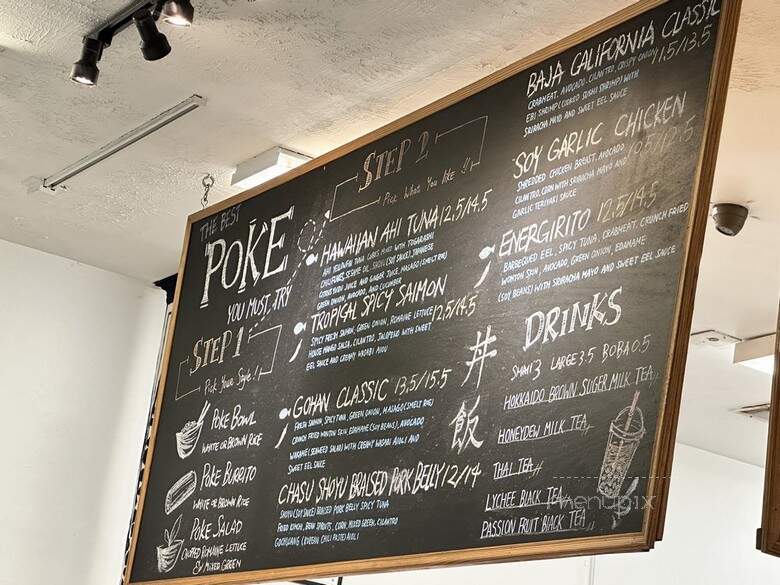 THE BEST
POKE
YOU MUST TRY
STEP 1
Pick Your Style !!
POKE BOWL
WHITE OR BROWN RICE
POKE BURRITO
WHITE OR BROWN RICE
POKE SALAD
CHOPPED ROMAINE LETTUCE
& MIXED GREEN
STEP 2
Pick What You like !!
HAWAIIAN AHI TUNA 12.5/14.5
AHI YELLOWFIN TUNA CUBES MIXED WITH TOGARASHI
SESAME OIL, SHOYU (SOY SAUCE), JAPANESE
CITRUS YUZU JUICE AND GINGER JUICE, MASAGO (SMELT ROE)
GREEN ONION, AVOCADO, AND CUCUMBER
TROPICAL SPICY SALMON 12.5/14.5
SPICY FRESH SALMON, GREEN ONION, ROMAINE LETTUCE
HOUSE MANGO SALSA, CILANTRO, JALAPENO WITH SWEET
EEL SAUCE AND CREAMY WASABI AIOLI
GOHAN CLASSIC 13.5/15.5
FRESH SALMON, SPICY TUNA, GREEN ONION, MASAGO (SMELT ROE)
CRUNCH FRIED WONTON SKIN, EDAMAME (SOY BEANS), AVOCADO
WAKAME (SEAWEED SALAD) WITH CREAMY WASABI AIOLI AND
SWEET EEL SAUCE
CHASU SHOYU BRAISED PORK BELLY 12/14
SHOYU (SOY SAUCE) BRAISED PORK BELLY, SPICY TUNA
FRIED ONION, BEAN SPROUTS, CORN, MIXED GREEN, CILANTRO
GOCHUJANG (KOREAN CHILI PASTE) AIOLI
丼
飯
BAJA CALIFORNIA CLASSIC
11.5/13.5
CRABMEAT, AVOCADO, CILANTRO, CRISPY ONION
EBI SHRIMP (COOKED SUSHI SHRIMP) WITH
SRIRACHA MAYO AND SWEET EEL SAUCE
SOY GARLIC CHICKEN
10.5/12.5
SHREDDED CHICKEN BREAST, AVOCADO
CILANTRO, CORN WITH SRIRACHA MAYO AND
GARLIC TERIYAKI SAUCE
ENERGIRITO 12.5/14.5
BARBEQUED EEL, SPICY TUNA, CRABMEAT, CRUNCH FRIED
WONTON SKIN, AVOCADO, GREEN ONION, EDAMAME
(SOY BEANS) WITH SRIRACHA MAYO AND SWEET EEL SAUCE
DRINKS
SMALL 3 LARGE 3.5 BOBA 0.5
HOKKAIDO BROWN SUGER MILK TEA
HONEYDEW MILK TEA
THAI TEA
LYCHEE BLACK TEA
PASSION FRUIT BLACK TEA
menupix